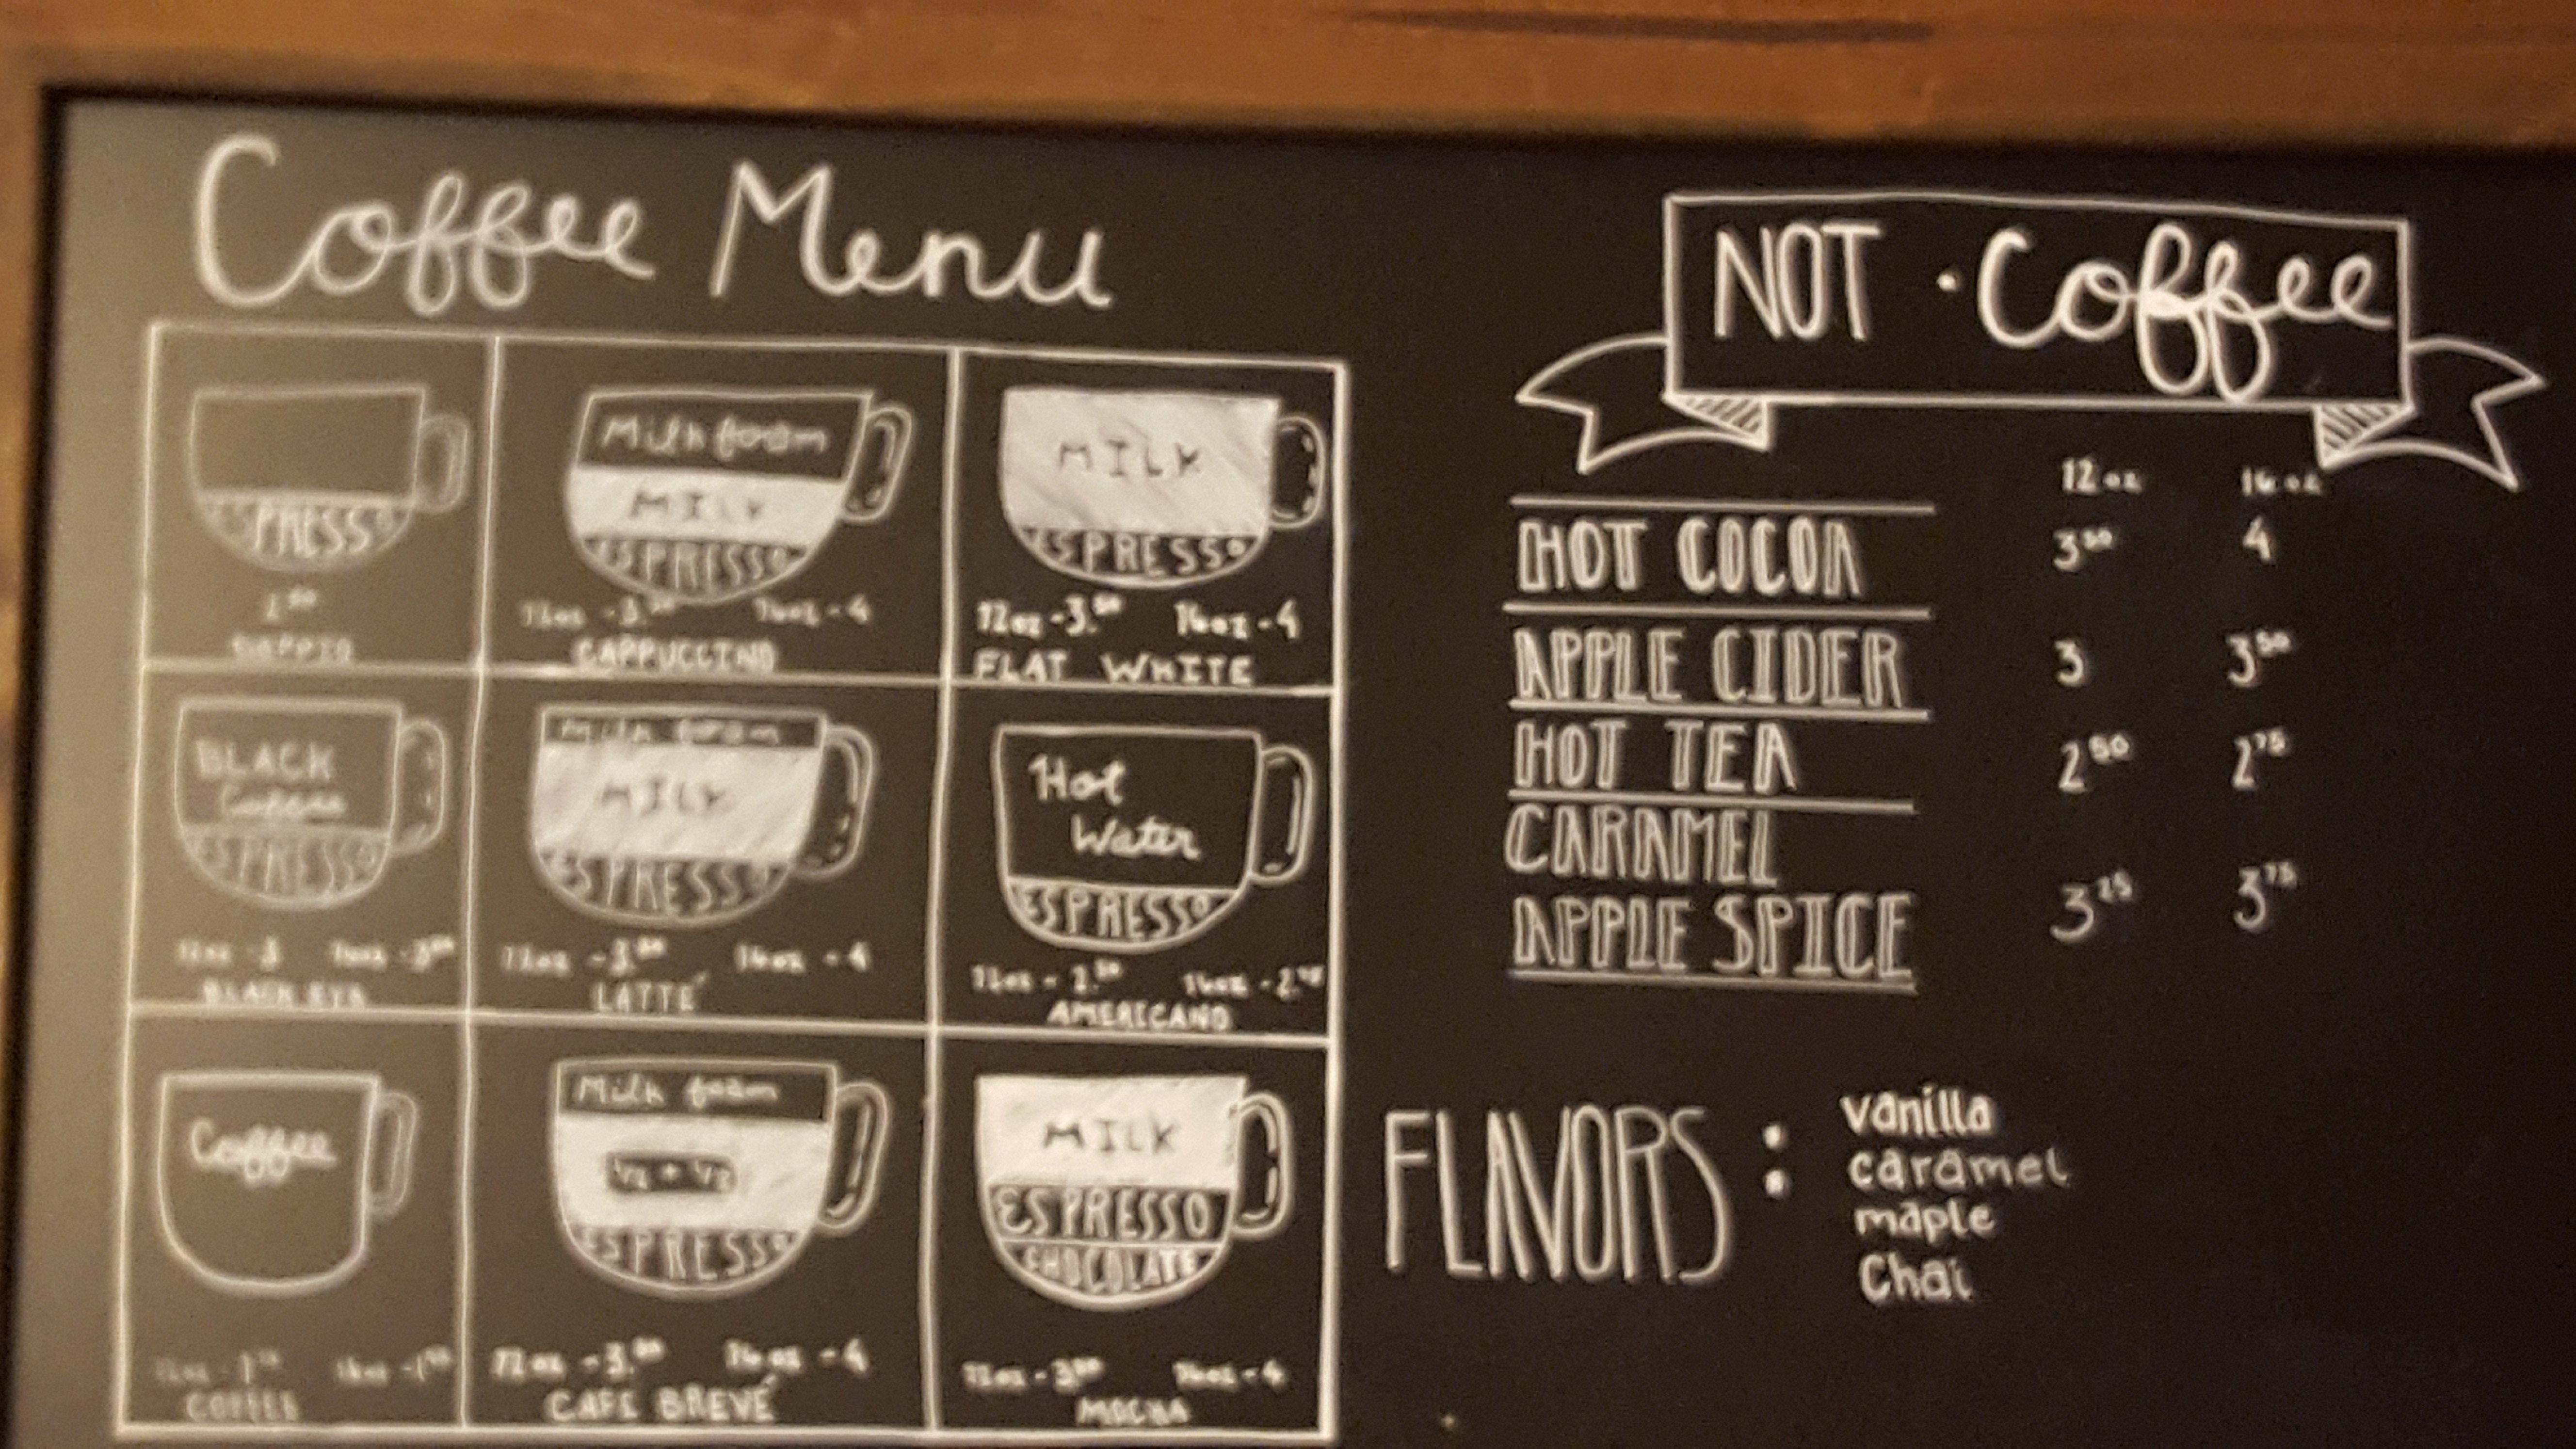 Coffee Menu
ESPRESSO
DOPPIO
Milk foam
MILK
ESPRESSO
12oz - 3.50 16oz - 4
CAPPUCCINO
MILK
ESPRESSO
12oz - 3.50 16oz - 4
FLAT WHITE
BLACK
Coffee
ESPRESSO
12oz - 3 16oz - 350
BLACK EYE
Milk foam
MILK
ESPRESSO
12oz - 3.50 16oz - 4
LATTÉ
Hot
Water
ESPRESSO
12oz - 2.50 16oz
AMERICANO
Coffee
12oz 16oz
COFFEE
Milk foam
1/2 + 1/2
ESPRESSO
12oz - 3.50 16oz - 4
CAFE BREVÉ
MILK
ESPRESSO
CHOCOLATE
12oz - 350 16oz - 4
MOCHA
NOT · Coffee
12oz 16oz
HOT COCOA 350 4
APPLE CIDER 3 350
HOT TEA 250 275
CARAMEL
APPLE SPICE 325 375
FLAVORS :
vanilla
caramel
maple
Chai